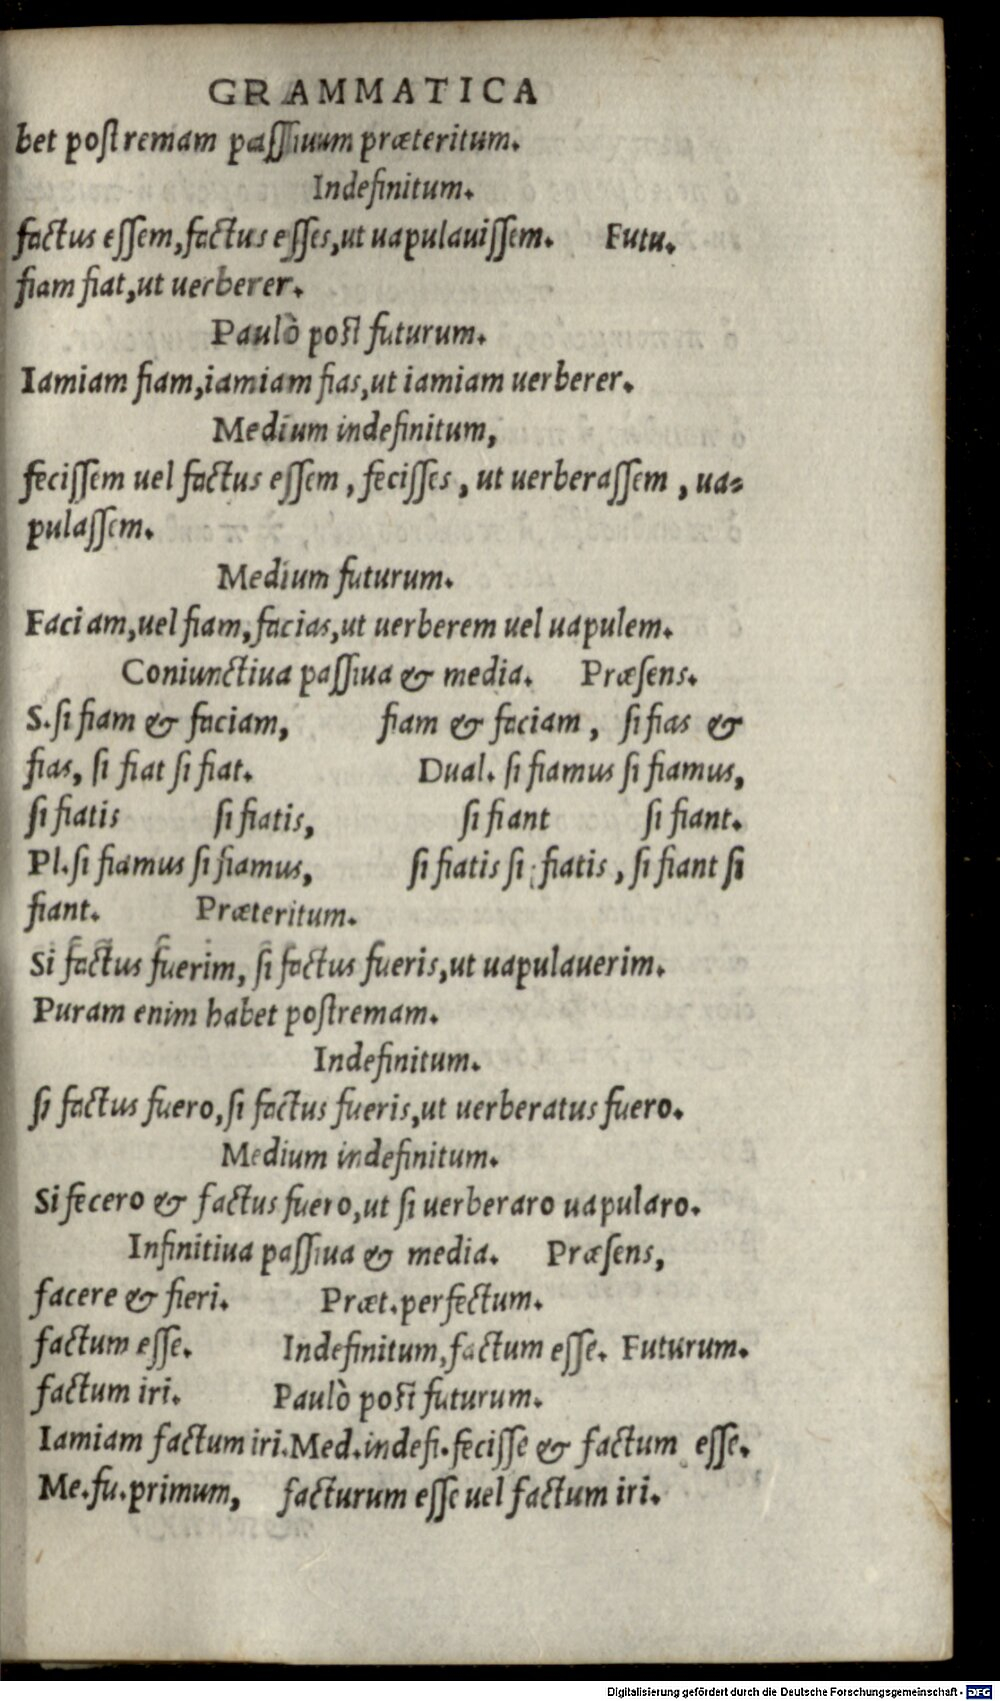 GRAMMATICA
bet postremam passiuum præteritum.
Indefinitum.
factus essem, factus esses, ut uapulauissem. Futu.
fiam fiat, ut uerberer.
Paulò post futurum.
Iamiam fiam, iamiam fias, ut iamiam uerberer.
Medium indefinitum,
fecissem uel factus essem, fecisses, ut uerberassem, ua-
pulassem.
Medium futurum.
Faciam, uel fiam, facias, ut uerberem uel uapulem.
Coniunctiua passiua & media. Præsens.
S. si fiam & faciam, fiam & faciam, si fias &
fias, si fiat si fiat. Dual. si fiamus si fiamus,
si fiatis si fiatis, si fiant si fiant.
Pl. si fiamus si fiamus, si fiatis si fiatis, si fiant si
fiant. Præteritum.
Si factus fuerim, si factus fueris, ut uapulauerim.
Puram enim habet postremam.
Indefinitum.
si factus fuero, si factus fueris, ut uerberatus fuero.
Medium indefinitum.
Si fecero & factus fuero, ut si uerberaro uapularo.
Infinitiua passiua & media. Præsens,
facere & fieri. Præt. perfectum.
factum esse. Indefinitum, factum esse. Futurum.
factum iri. Paulò post futurum.
Iamiam factum iri. Med. indefi. fecisse & factum esse.
Me. fu. primum, facturum esse uel factum iri.
Digitalisierung gefördert durch die Deutsche Forschungsgemeinschaft - DFG